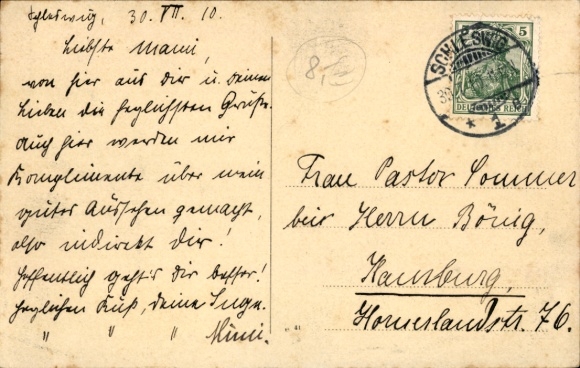 Schleswig, 30. VII. 10.
Liebste Mami,
von hier aus Dir u. Deinen
Lieben die herzlichsten Grüße.
Auch hier werden mir
Komplimente über mein
gutes Aussehen gemacht,
also indirekt Dir!
Hoffentlich geht's Dir besser!
Herzlichen Kuß, Deine Inge.
" " " Mimi.
8,-
5
SCHLESWIG
DEUTSCHES REICH
* 1
Frau Pastor Sommer
bei Herrn Bönig,
Hamburg,
Horuerlandstr. 76.